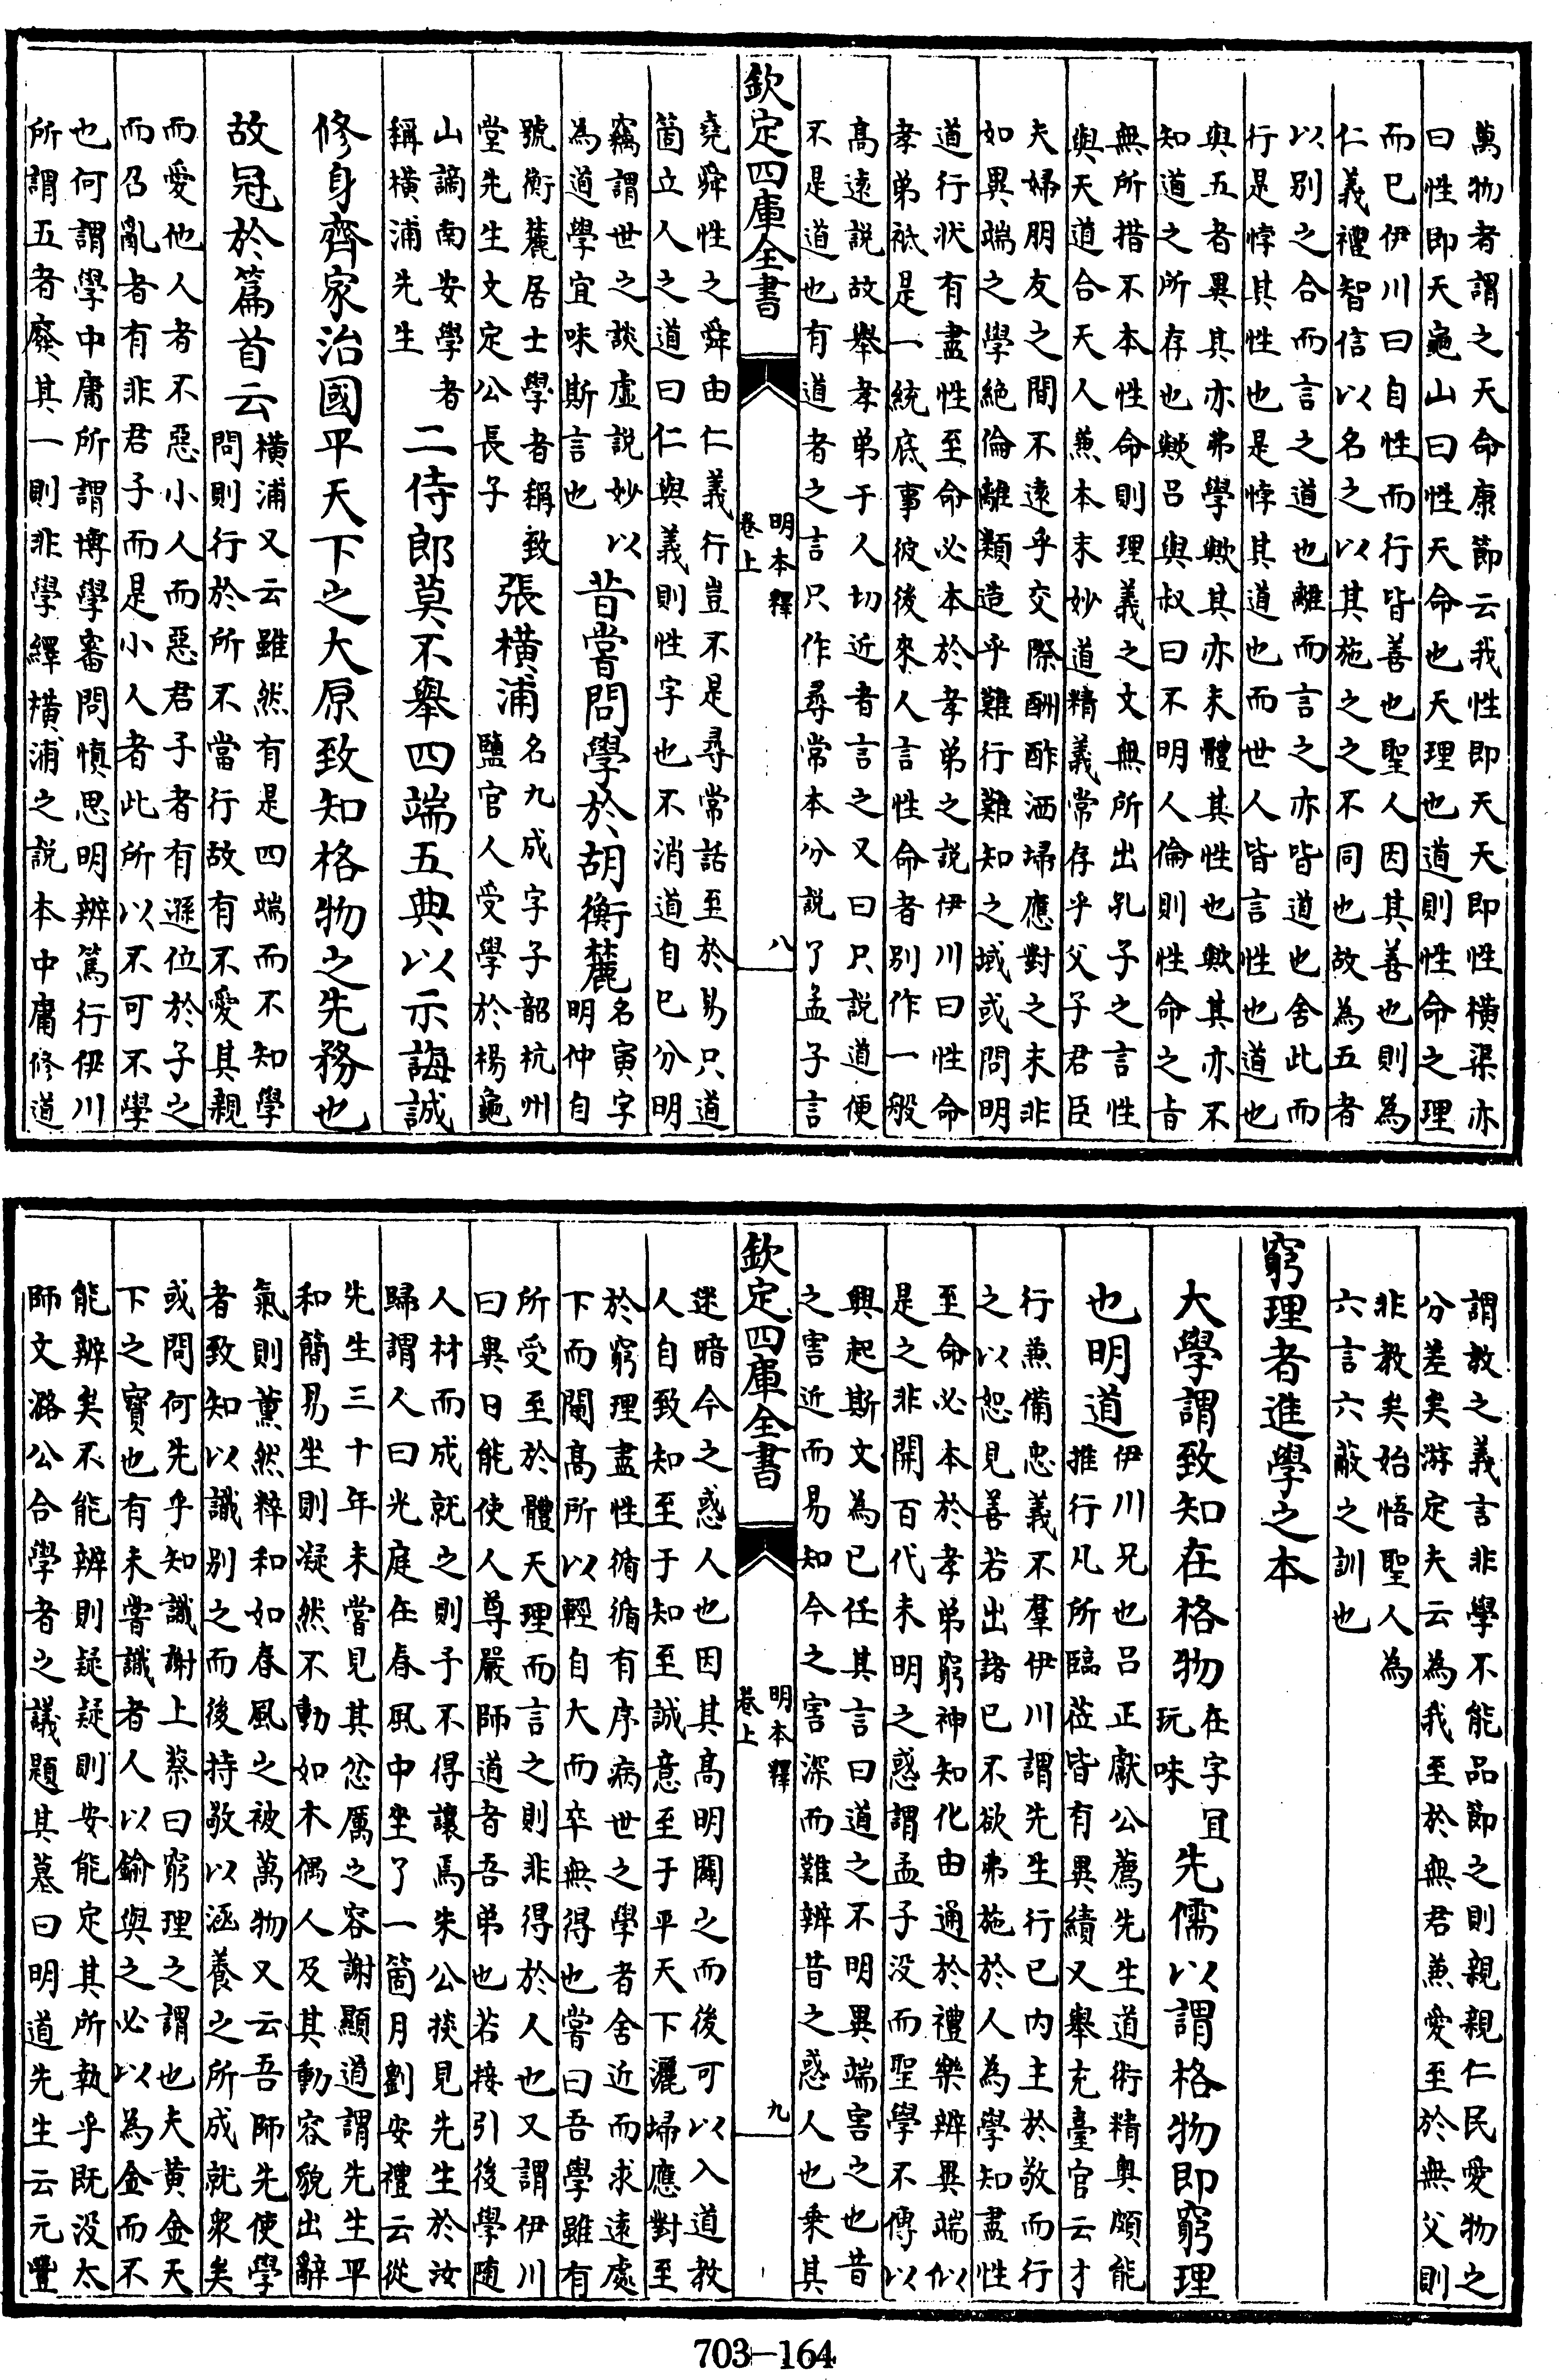 萬物者謂之天命康節云我性即天天即性橫渠亦
曰性即天龜山曰性天命也天理也道則性命之理
而已伊川曰自性而行皆善也聖人因其善也則為
仁義禮智信以名之以其施之之不同也故為五者
以別之合而言之道也離而言之亦皆道也舍此而
行是悖其性也是悖其道也而世人皆言性也道也
與五者異其亦弗學歟其亦未體其性也歟其亦不
知道之所存也歟呂與叔曰不明人倫則性命之㫖
無所措不本性命則理義之文無所出孔子之言性
與天道合天人兼本末妙道精義常存乎父子君臣
夫婦朋友之間不遠乎交際酬酢洒埽應對之末非
如異端之學絶倫離類造乎難行難知之域或問明
道行狀有盡性至命必本於孝弟之說伊川曰性命
孝弟祗是一統底事彼後來人言性命者別作一般
高遠説故舉孝弟于人切近者言之又曰只説道便
不是道也有道者之言只作尋常本分説了孟子言
欽定四庫全書
明本釋
卷上
八
堯舜性之舜由仁義行豈不是尋常話至於易只道
箇立人之道曰仁與義則性字也不消道自已分明
竊謂世之談虛説妙以
為道學宜味斯言也
昔嘗問學於胡衡麓
名寅字
明仲自
號衡麓居士學者稱致
堂先生文定公長子
張橫浦
名九成字子韶杭州
鹽官人受學於楊龜
山謫南安學者
稱橫浦先生
二侍郎莫不舉四端五典以示誨誠
修身齊家治國平天下之大原致知格物之先務也
故冠於篇首云
橫浦又云雖然有是四端而不知學
問則行於所不當行故有不愛其親
而愛他人者不惡小人而惡君子者有遜位於子之
而召亂者有非君子而是小人者此所以不可不學
也何謂學中庸所謂博學審問慎思明辨篤行伊川
所謂五者廢其一則非學繹橫浦之説本中庸修道
謂教之義言非學不能品節之則親親仁民愛物之
分差矣游定夫云為我至於無君兼愛至於無父則
非教矣始悟聖人為
六言六蔽之訓也
窮理者進學之本
大學謂致知在格物
在字宜
玩味
先儒以謂格物即窮理
也明道
伊川兄也呂正獻公薦先生道術精奥頗能
推行凡所臨蒞皆有異績又舉充臺官云才
行兼備忠義不羣伊川謂先生行已内主於敬而行
之以恕見善若出諸已不欲弗施於人為學知盡性
至命必本於孝弟窮神知化由通於禮樂辨異端似
是之非開百代未明之惑謂孟子没而聖學不傳以
興起斯文為已任其言曰道之不明異端害之也昔
之害近而易知今之害深而難辨昔之惑人也乗其
欽定四庫全書
明本釋
卷上
九
迷暗今之惑人也因其高明闢之而後可以入道教
人自致知至于知至誠意至于平天下灑埽應對至
於窮理盡性循循有序病世之學者舍近而求遠處
下而闚高所以輕自大而卒無得也嘗曰吾學雖有
所受至於體天理而言之則非得於人也又謂伊川
曰異日能使人尊嚴師道者吾弟也若接引後學随
人材而成就之則予不得讓焉朱公掞見先生於汝
歸謂人曰光庭在春風中坐了一箇月劉安禮云從
先生三十年未嘗見其忿厲之容謝顯道謂先生平
和簡易坐則凝然不動如木偶人及其動容貌出辭
氣則薰然粹和如春風之被萬物又云吾師先使學
者致知以識別之而後持敬以涵養之所成就衆矣
或問何先乎知識謝上蔡曰窮理之謂也夫黄金天
下之寳也有未嘗識者人以鍮與之必以為金而不
能辨矣不能辨則疑疑則安能定其所執乎既没太
師文潞公合學者之議題其墓曰明道先生云元豐
703-164